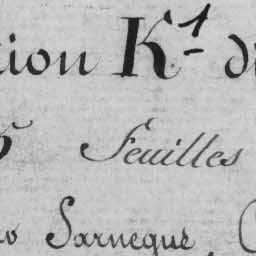 tion K.1 d
5 Feuilles
o Sarnegue, C